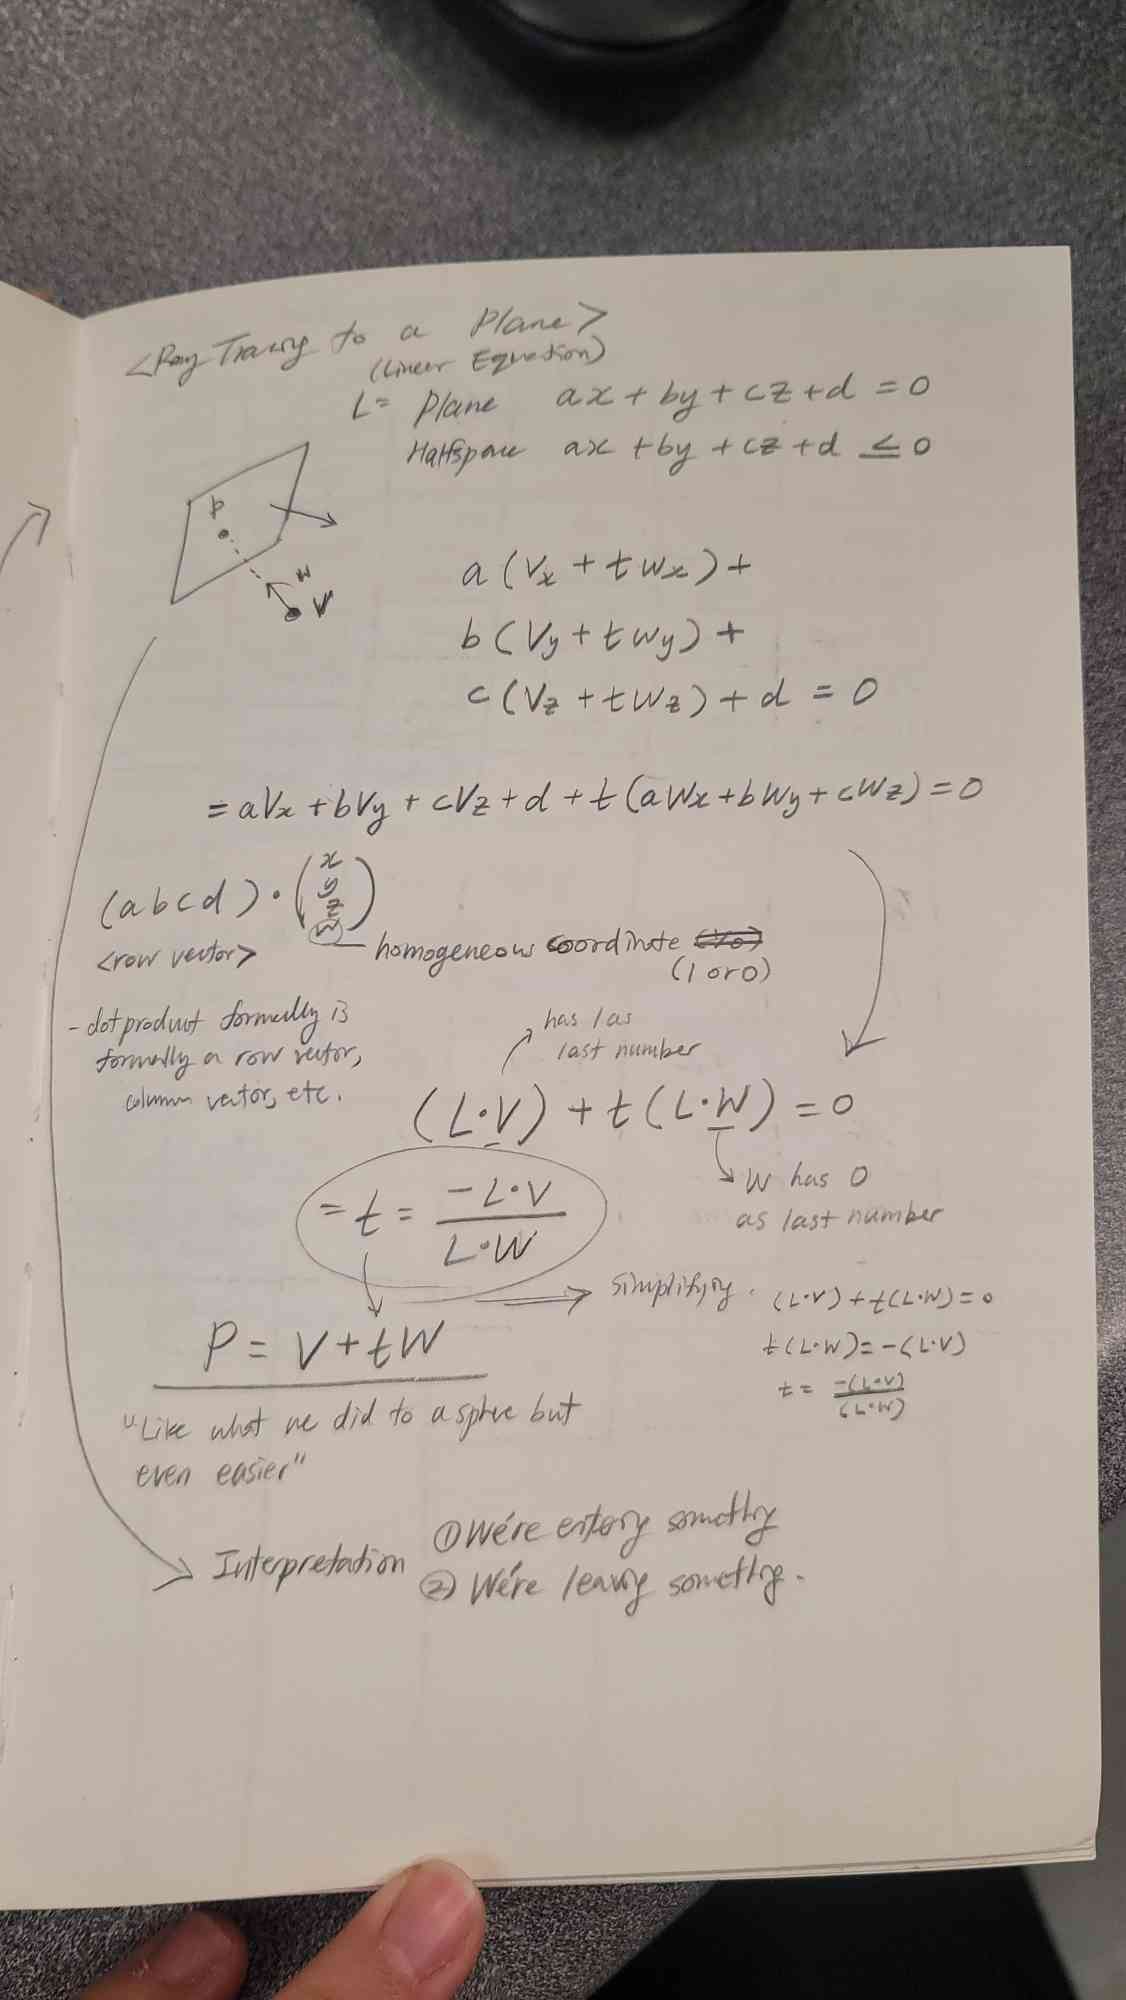 <Ray Tracing to a Plane>
(Linear Equation)
L= Plane ax + by + cz + d = 0
Halfspace ax + by + cz + d ≤ 0
p
w
V
a (Vx + t Wx) +
b (Vy + t Wy) +
c (Vz + t Wz) + d = 0
= aVx + bVy + cVz + d + t (aWx + bWy + cWz) = 0
(a b c d) · (x
y
z
w)
homogeneous coordinate
(1 or 0)
<row vector>
- dot product formally is
formally a row vector,
column vector, etc.
has 1 as
last number
(L·V) + t (L·W) = 0
W has 0
as last number
= t = -L·V / L·W
simplifying.
(L·V) + t(L·W) = 0
t(L·W) = -(L·V)
t = -(L·V) / (L·W)
P = V + tW
"Like what we did to a sphere but
even easier"
Interpretation
① We're entering something
② We're leaving something.